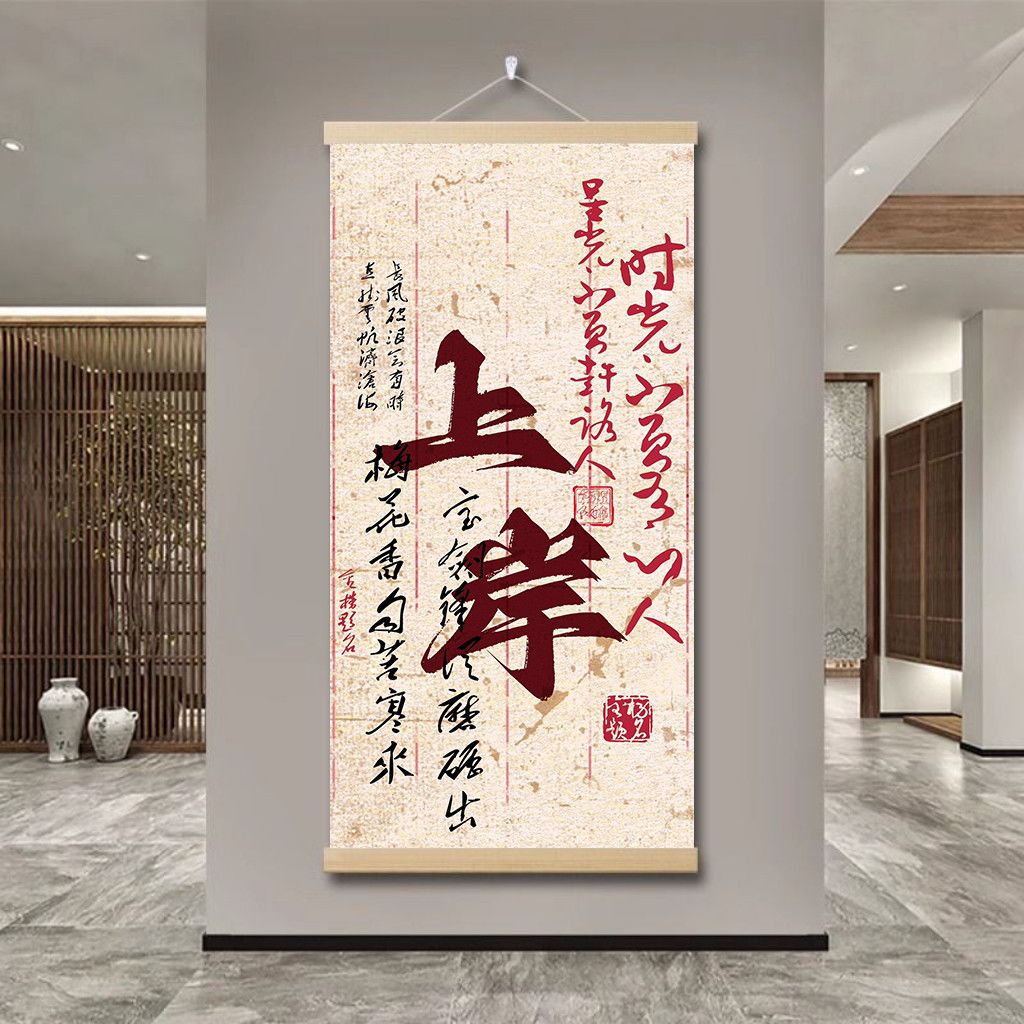 时光不负有心人
星光不负赶路人
上岸
宝剑锋从磨砺出
梅花香自苦寒来
長风破浪会有時
直挂雲帆濟滄海
金榜题名